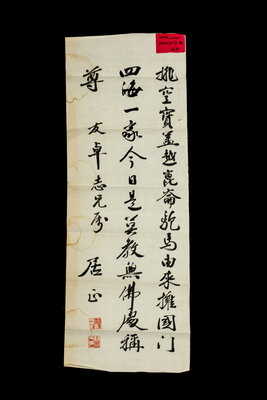 排空寶蓋越崑崙乾馬由来擁國门
四海一家今日是莫教無佛處稱
尊
友卓志兄属
居正